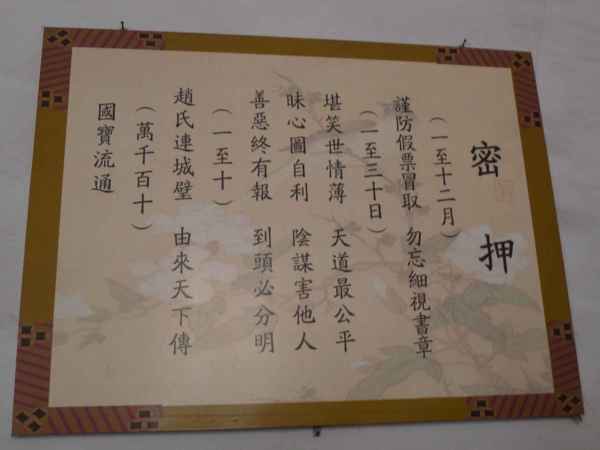 密押
（一至十二月）
謹防假票冒取　勿忘細視書章
（一至三十日）
堪笑世情薄　天道最公平
昧心圖自利　陰謀害他人
善惡終有報　到頭必分明
（一至十）
趙氏連城壁　由來天下傳
（萬千百十）
國寶流通